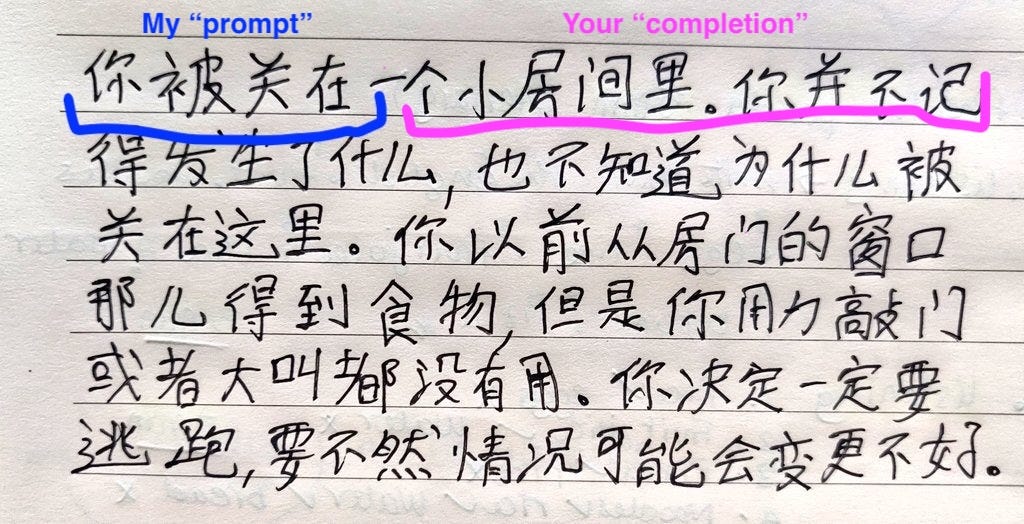 My “prompt” Your “completion”
你被关在一个小房间里。你并不记
得发生了什么，也不知道为什么被
关在这里。你以前从房门的窗口
那儿得到食物，但是你用力敲门
或者大叫都没有用。你决定一定要
逃跑，要不然情况可能会变更不好。